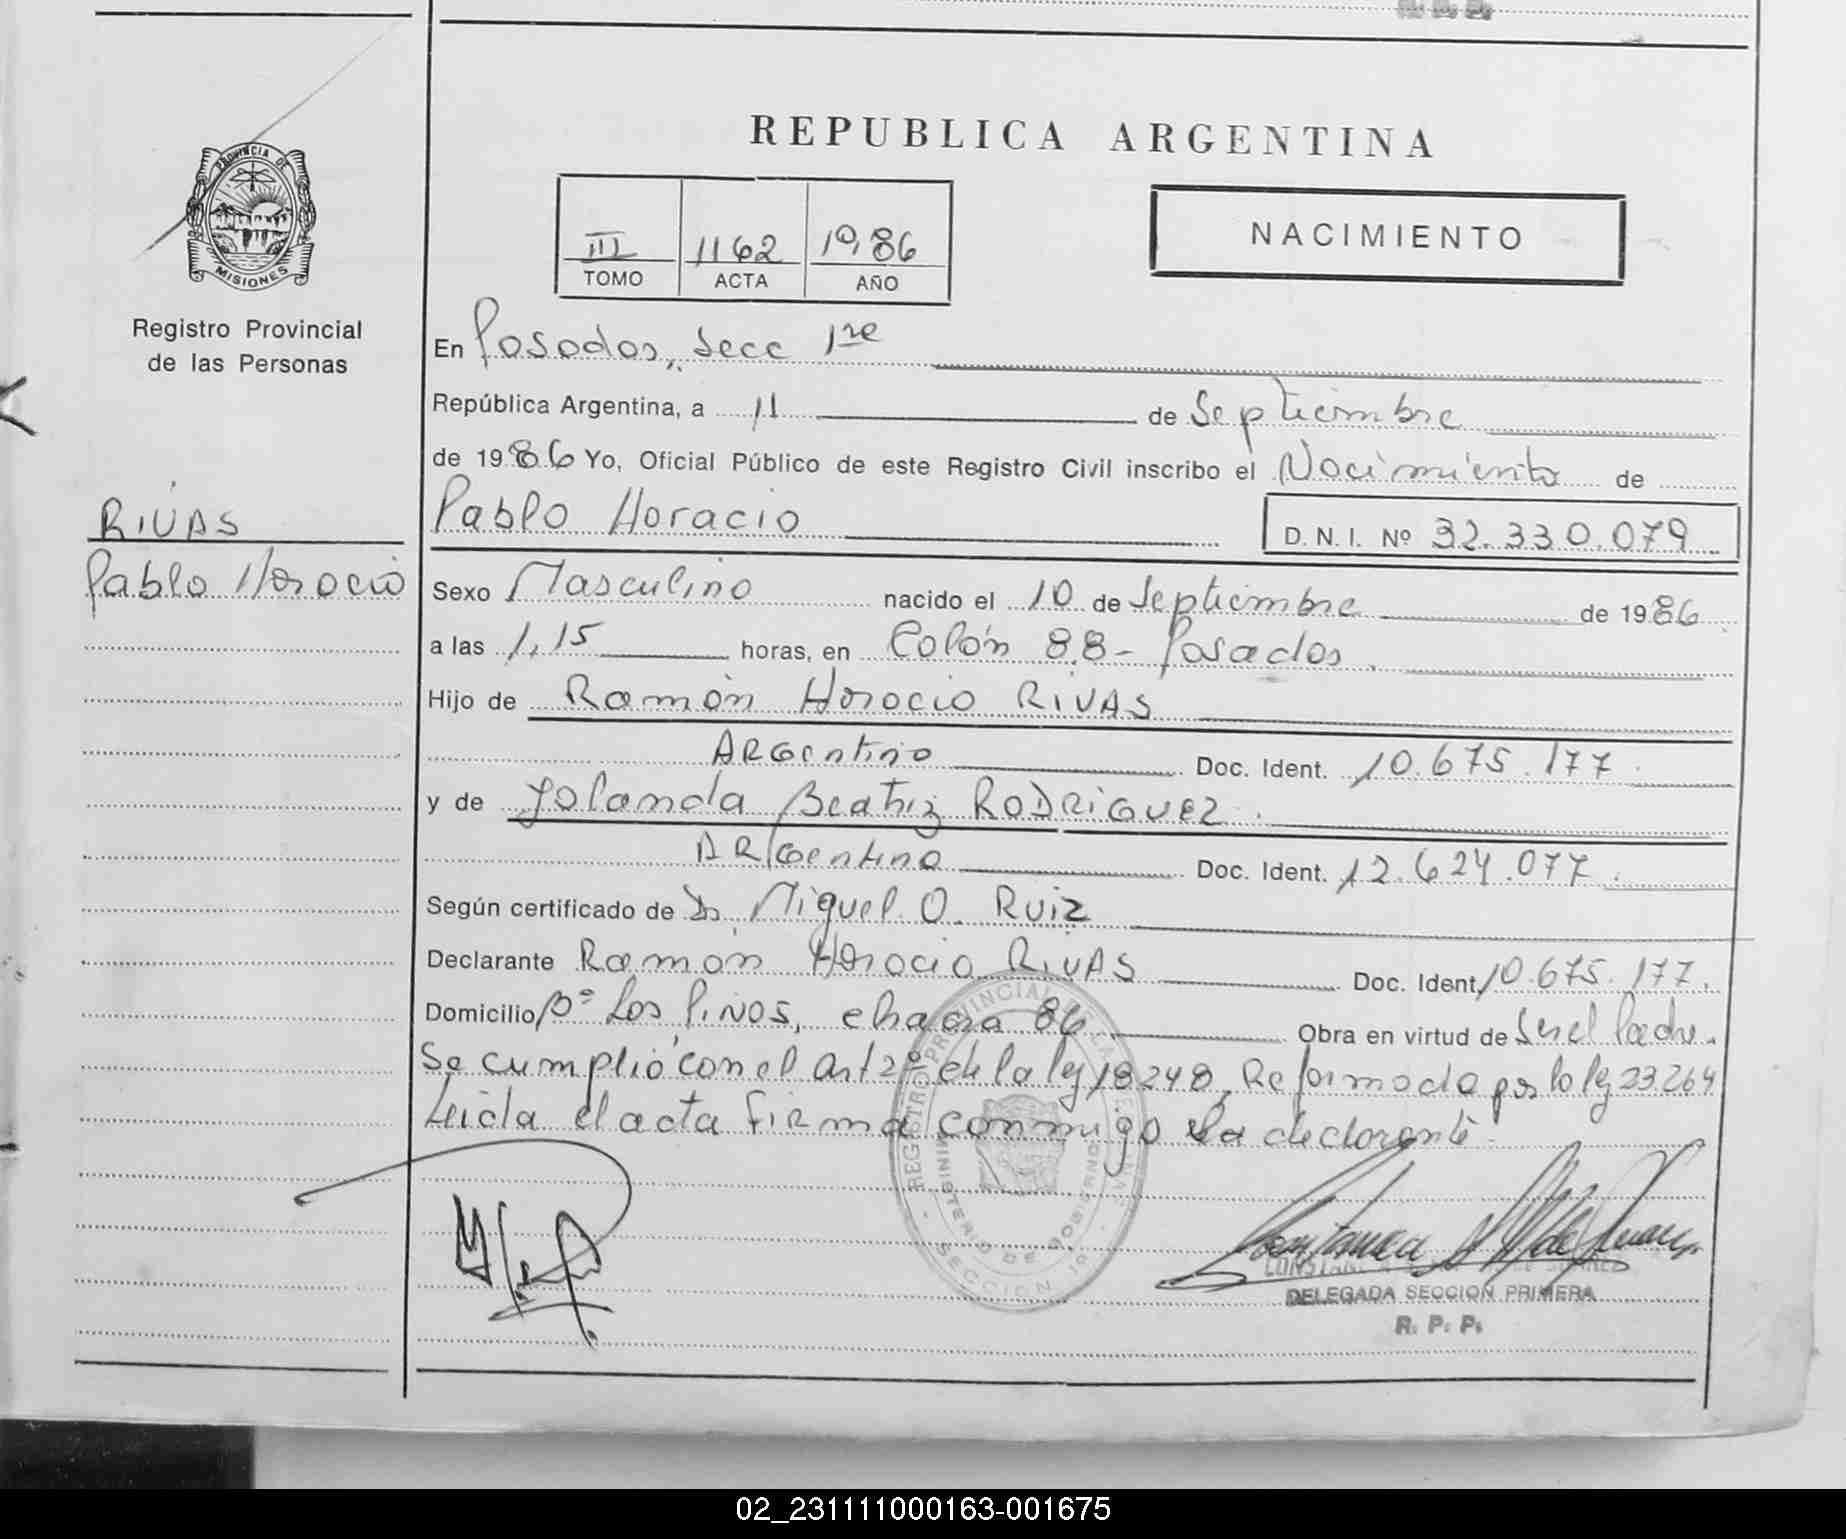 R. P. P.
REPUBLICA ARGENTINA
PROVINCIA DE
MISIONES
Registro Provincial
de las Personas
III 1162 1986
TOMO ACTA AÑO
NACIMIENTO
En Posadas, Secc 1ra
República Argentina, a 11 de Septiembre
de 1986 Yo, Oficial Público de este Registro Civil inscribo el Nacimiento de
RIVAS
Pablo Horacio
Pablo Horacio D. N. I. Nº 32.330.079
Sexo Masculino nacido el 10 de Septiembre de 1986
a las 1,15 horas, en Colón 88 - Posadas.
Hijo de Ramón Horacio RIVAS
Argentino Doc. Ident. 10.675.177.
y de Yolanda Beatriz RODRIGUEZ.
Argentina Doc. Ident. 12.624.077.
Según certificado de Dr. Miguel O. Ruiz
Declarante Ramón Horacio RIVAS Doc. Ident. 10.675.177.
Domicilio Bº Los Pinos, chacra 86 Obra en virtud de Ser el Padre.
Se cumplió con el art 2º de la ley 18248, Reformada por la ley 23.264
Leida el acta firma conmigo el declarante.
REGISTRO PROVINCIAL DE LAS PERSONAS
MINISTERIO DE GOBIERNO
SECCION 1a
DELEGADA SECCION PRIMERA
R. P. P.
02_231111000163-001675